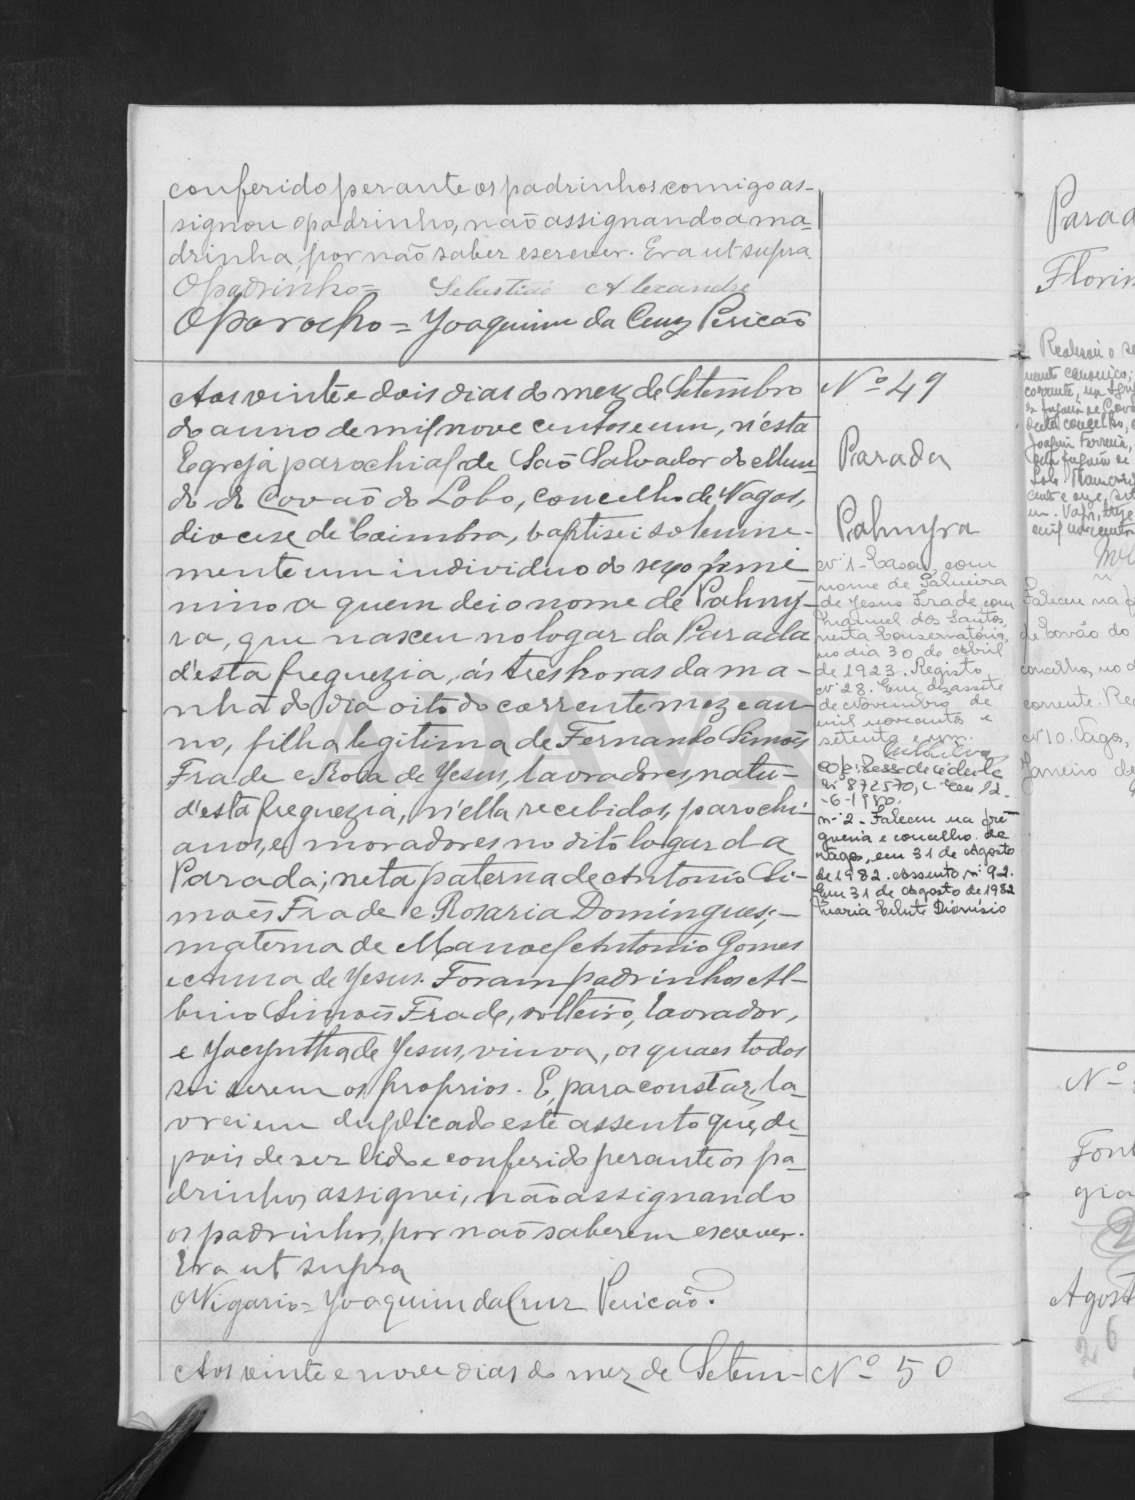 conferido perante os padrinhos comigo as-
signou o padrinho, não assignando a ma-
drinha, por não saber escrever. Era ut supra
O padrinho = Sebastião Alexandre
O parocho = Joaquim da Cruz Pericão
Aos vinte e dois dias do mez de Setembro
do anno de mil nove centos e um, n'esta
Egreja parochial de São Salvador do Mun-
do de Covão do Lobo, concelho de Vagos,
diocese de Coimbra, baptisei solemne-
mente um individuo do sexo femi-
nino a quem dei o nome de Palmy-
ra, que nasceu no logar da Parada
d'esta freguezia, ás tres horas da ma-
nhã do dia oito do corrente mez e an-
no, filha legitima de Fernando Simões
Frade e Rosa de Jesus, lavradores, natu-
d'esta freguezia, n'ella recebidos, parochi-
anos, e moradores no dito logar da
Parada; neta paterna de Antonio Si-
mões Frade e Rosaria Domingues; -
materna de Manoel Antonio Gomes
e Anna de Jesus. Foram padrinhos Al-
bino Simões Frade, solteiro, lavrador,
e Jacyntha de Jesus, viuva, os quaes todos
sei serem os proprios. E, para constar, la-
vrei em duplicado este assento que, de-
pois de ser lido e conferido perante os pa-
drinhos, assignei, não assignando
os padrinhos, por não saberem escrever.
Era ut supra
O Vigario = Joaquim da Cruz Pericão.
Aos vinte e nove dias do mez de Setem-
Nº 49
Parada
Palmyra
Nº 1 - Casou, com
nome de Palmira
de Jesus Frade, com
Manuel dos Santos,
nesta Conservatória,
no dia 30 de Abril
de 1923. Registo
nº 28. Em dezassete
de Novembro de
mil novecentos e
setenta e um.
de cédula
nº 872570, em 12-
-6-1980.
nº 2 - Faleceu na fre-
guesia e concelho de
Vagos, em 31 de Agosto
de 1982. Assento nº 92.
Em 31 de Agosto de 1982
Maria Celeste Dionísio
Nº 50
Parad
Florin
Faleceu na
de Covão do
concelho, no d
corrente. Re
nº 10. Vagos,
Janeiro de
Nº
Font
gia
2
Agost
26
ADAVR